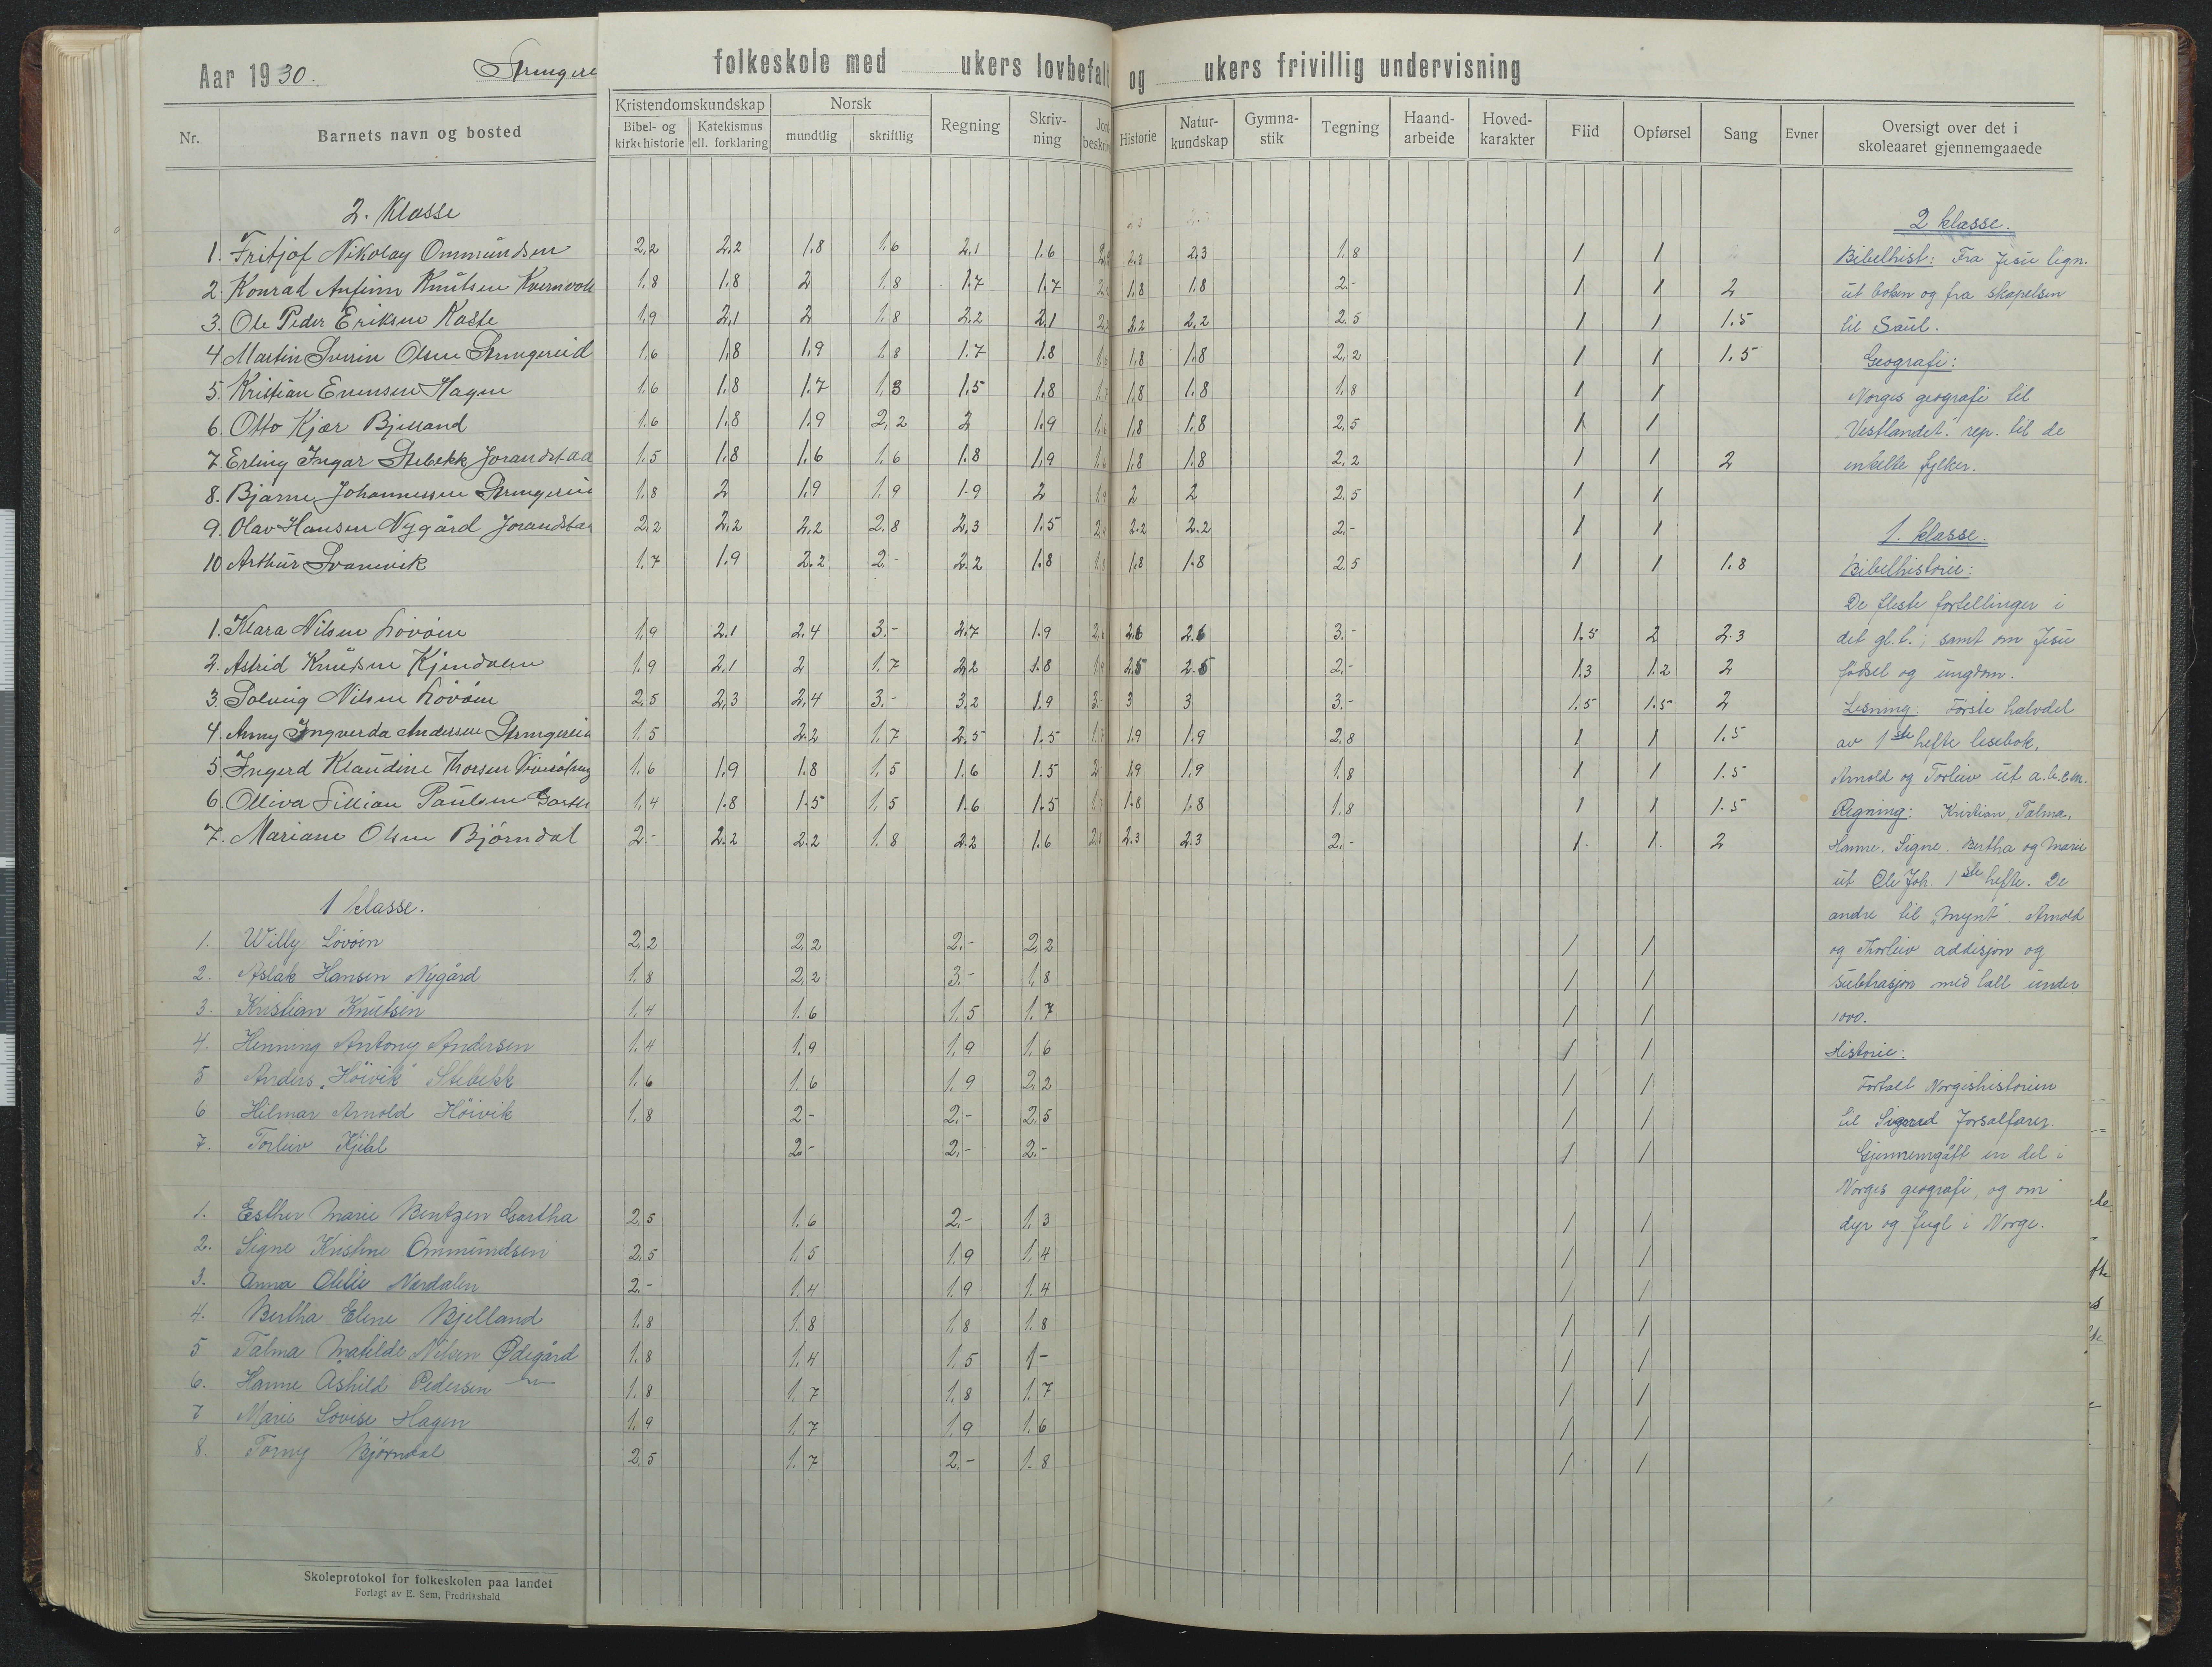 Aar 1930.
folkeskole med ukers lovbefalt og ukers frivillig undervisning
Nr. Barnets navn og bosted Kristendomskundskap Bibel- og kirkehistorie Katekismus ell. forklaring Norsk mundtlig skriftlig Regning Skrivning Historie Naturkundskap Gymnastik Tegning Haandarbeide Hovedkarakter Flid Opførsel Sang Evner Oversigt over det i skoleaaret gjennemgaaede
2. Klasse
1. Fritjof Nikolay Ommundsen 2,2 2,2 1.8 1.6 2,1 1.6 2,3 2,3 1.8 1 1
2. Konrad Anfinn Knutsen 1.8 1.8 2 1.8 1.7 1.7 1.8 1.8 2.- 1 1 2
3. Ole Peder Eriksen Kaste 1.9 2,1 2 1.8 2,2 2,1 2,2 2,2 2,5 1 1 1.5
4 Martin Sverin Olsen 1.6 1.8 1.9 1.8 1.7 1.8 1.8 1.8 2,2 1 1 1.5
5. Kristian Evensen Hagen 1.6 1.8 1.7 1,3 1.5 1.8 1.8 1.8 1.8 1 1
6. Otto Kjær Bjelland 1.6 1.8 1.9 2,2 2 1.9 1.8 1.8 2,5 1 1
7. Erling Ingar Stebekk 1.5 1.8 1.6 1.6 1.8 1.9 1.8 1.8 2,2 1 1 2
8. Bjarne Johannessen 1.8 2 1.9 1.9 1.9 2 2 2 2,5 1 1
9. Olav Hansen Nygård 2,2 2,2 2,2 2.8 2,3 1.5 2.2 2.2 2.- 1 1
10 Arthur Svanevik 1.7 1.9 2.2 2.- 2.2 1.8 1.8 1.8 2,5 1 1 1.8
1. Klara Nilsen Løvåen 1.9 2.1 2,4 3.- 2.7 1.9 2.6 2.6 3.- 1.5 2 2.3
2. Astrid Knutsen Kjendalen 1.9 2.1 2 1.7 2,2 1.8 2.5 2.5 2.- 1.3 1.2 2
3. Solveig Nilsen Løvåen 2,5 2,3 2,4 3.- 3,2 1.9 3 3 3.- 1.5 1.5 2
4. Anny Ingverda Andersen 1.5 2.2 1.7 2,5 1.5 1.9 1.9 2.8 1 1 1.5
5 Ingerd Klaudine Thorsen 1.6 1.9 1.8 1.5 1.6 1.5 1.9 1.9 1.8 1 1 1.5
6. Olliva Lillian Paulsen 1.4 1.8 1.5 1.5 1.6 1.5 1.8 1.8 1.8 1 1 1.5
7. Mariane Olsen Bjørndal 2.- 2.2 2.2 1.8 2.2 1.6 2.3 2.3 2.- 1. 1. 2
1 klasse.
1. Willy Løvåen 2,2 2,2 2.- 2,2 1 1
2. Aslak Hansen Nygård 1.8 2,2 3.- 1.8 1 1
3. Kristian Knutsen 1.4 1.6 1.5 1.7 1 1
4. Henning Antony Andersen 1.4 1.9 1.9 1.6 1 1
5 Anders "Høivik" Stebekk 1.6 1.6 1.9 2,2 1 1
6 Hilmar Arnold Høivik 1.8 2- 2.- 2,5 1 1
7. Torleiv 2- 2.- 2.- 1 1
1. Esther Marie Bentzen Gartha 2,5 1.6 2.- 1.3 1 1
2. Signe Kristine Ommundsen 2,5 1.5 1.9 1.4 1 1
3. Anna Nordalen 2.- 1.4 1.9 1.4 1 1
4. Bertha Elene Bjelland 1.8 1.8 1.8 1.8 1 1
5 Talma Matilde Nilsen Ødegård 1.8 1.4 1.5 1- 1 1
6. Hanne Åshild Pedersen 1.8 1.7 1.8 1.7 1 1
7 Marie Lovise Hagen 1.9 1.7 1.9 1.6 1 1
8. Torny Bjørndal 2,5 1.7 2.- 1.8 1 1
2 klasse.
Bibelhist: Fra Jesu lign.
ut boken og fra skapelsen
til Saul.
Geografi:
Norges geografi til
"Vestlandet." rep. til de
enkelte fylker.
1. klasse.
Bibelhistorie:
De fleste fortellinger i
det gl. t.; samt om Jesu
fødsel og ungdom.
Lesning: Første halvdel
av 1ste hefte lesebok.
Arnold og Torleiv ut a.b.c.en.
Regning: Kristian, Talma,
Hanne, Signe, Bertha og Marie
ut Ole Joh. 1ste hefte. De
andre til "Mynt". Arnold
og Thorleiv addisjon og
subtrasjon med tall under
1000.
Historie:
Fortalt Norgeshistorien
til Sigurd Jorsalfarer.
Gjennemgått en del i
Norges geografi, og om
dyr og fugl i Norge.
Skoleprotokol for folkeskolen paa landet
Forlagt av E. Sem, Fredrikshald